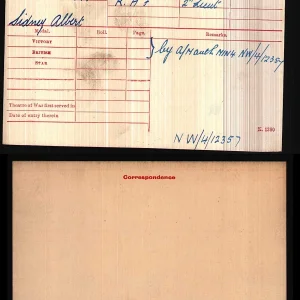 R.A.F 2" Lieut
Sidney Albert
Medal. Roll. Page. Remarks.
Victory
British
Star
} by NW/4/12357
Theatre of War first served in
Date of entry therein
NW/4/12357
K. 1380
Correspondence